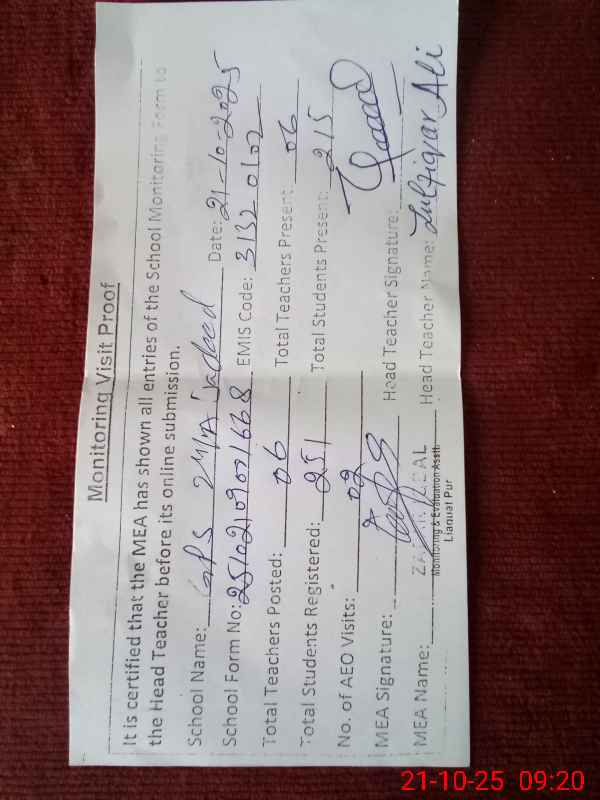 Monitoring Visit Proof
It is certified that the MEA has shown all entries of the School Monitoring Form to
the Head Teacher before its online submission.
School Name: GPS 2M/A Jadeed Date: 21-10-2025
School Form No: EMIS Code: 31320102
Total Teachers Posted: 06 Total Teachers Present: 06
Total Students Registered: 251 Total Students Present: 215
No. of AEO Visits: 02
MEA Signature: Head Teacher Signature:
MEA Name: Head Teacher Name: Zulfiqar Ali
Monitoring & Evaluation Asstt.
Liaquat Pur
21-10-25 09:20